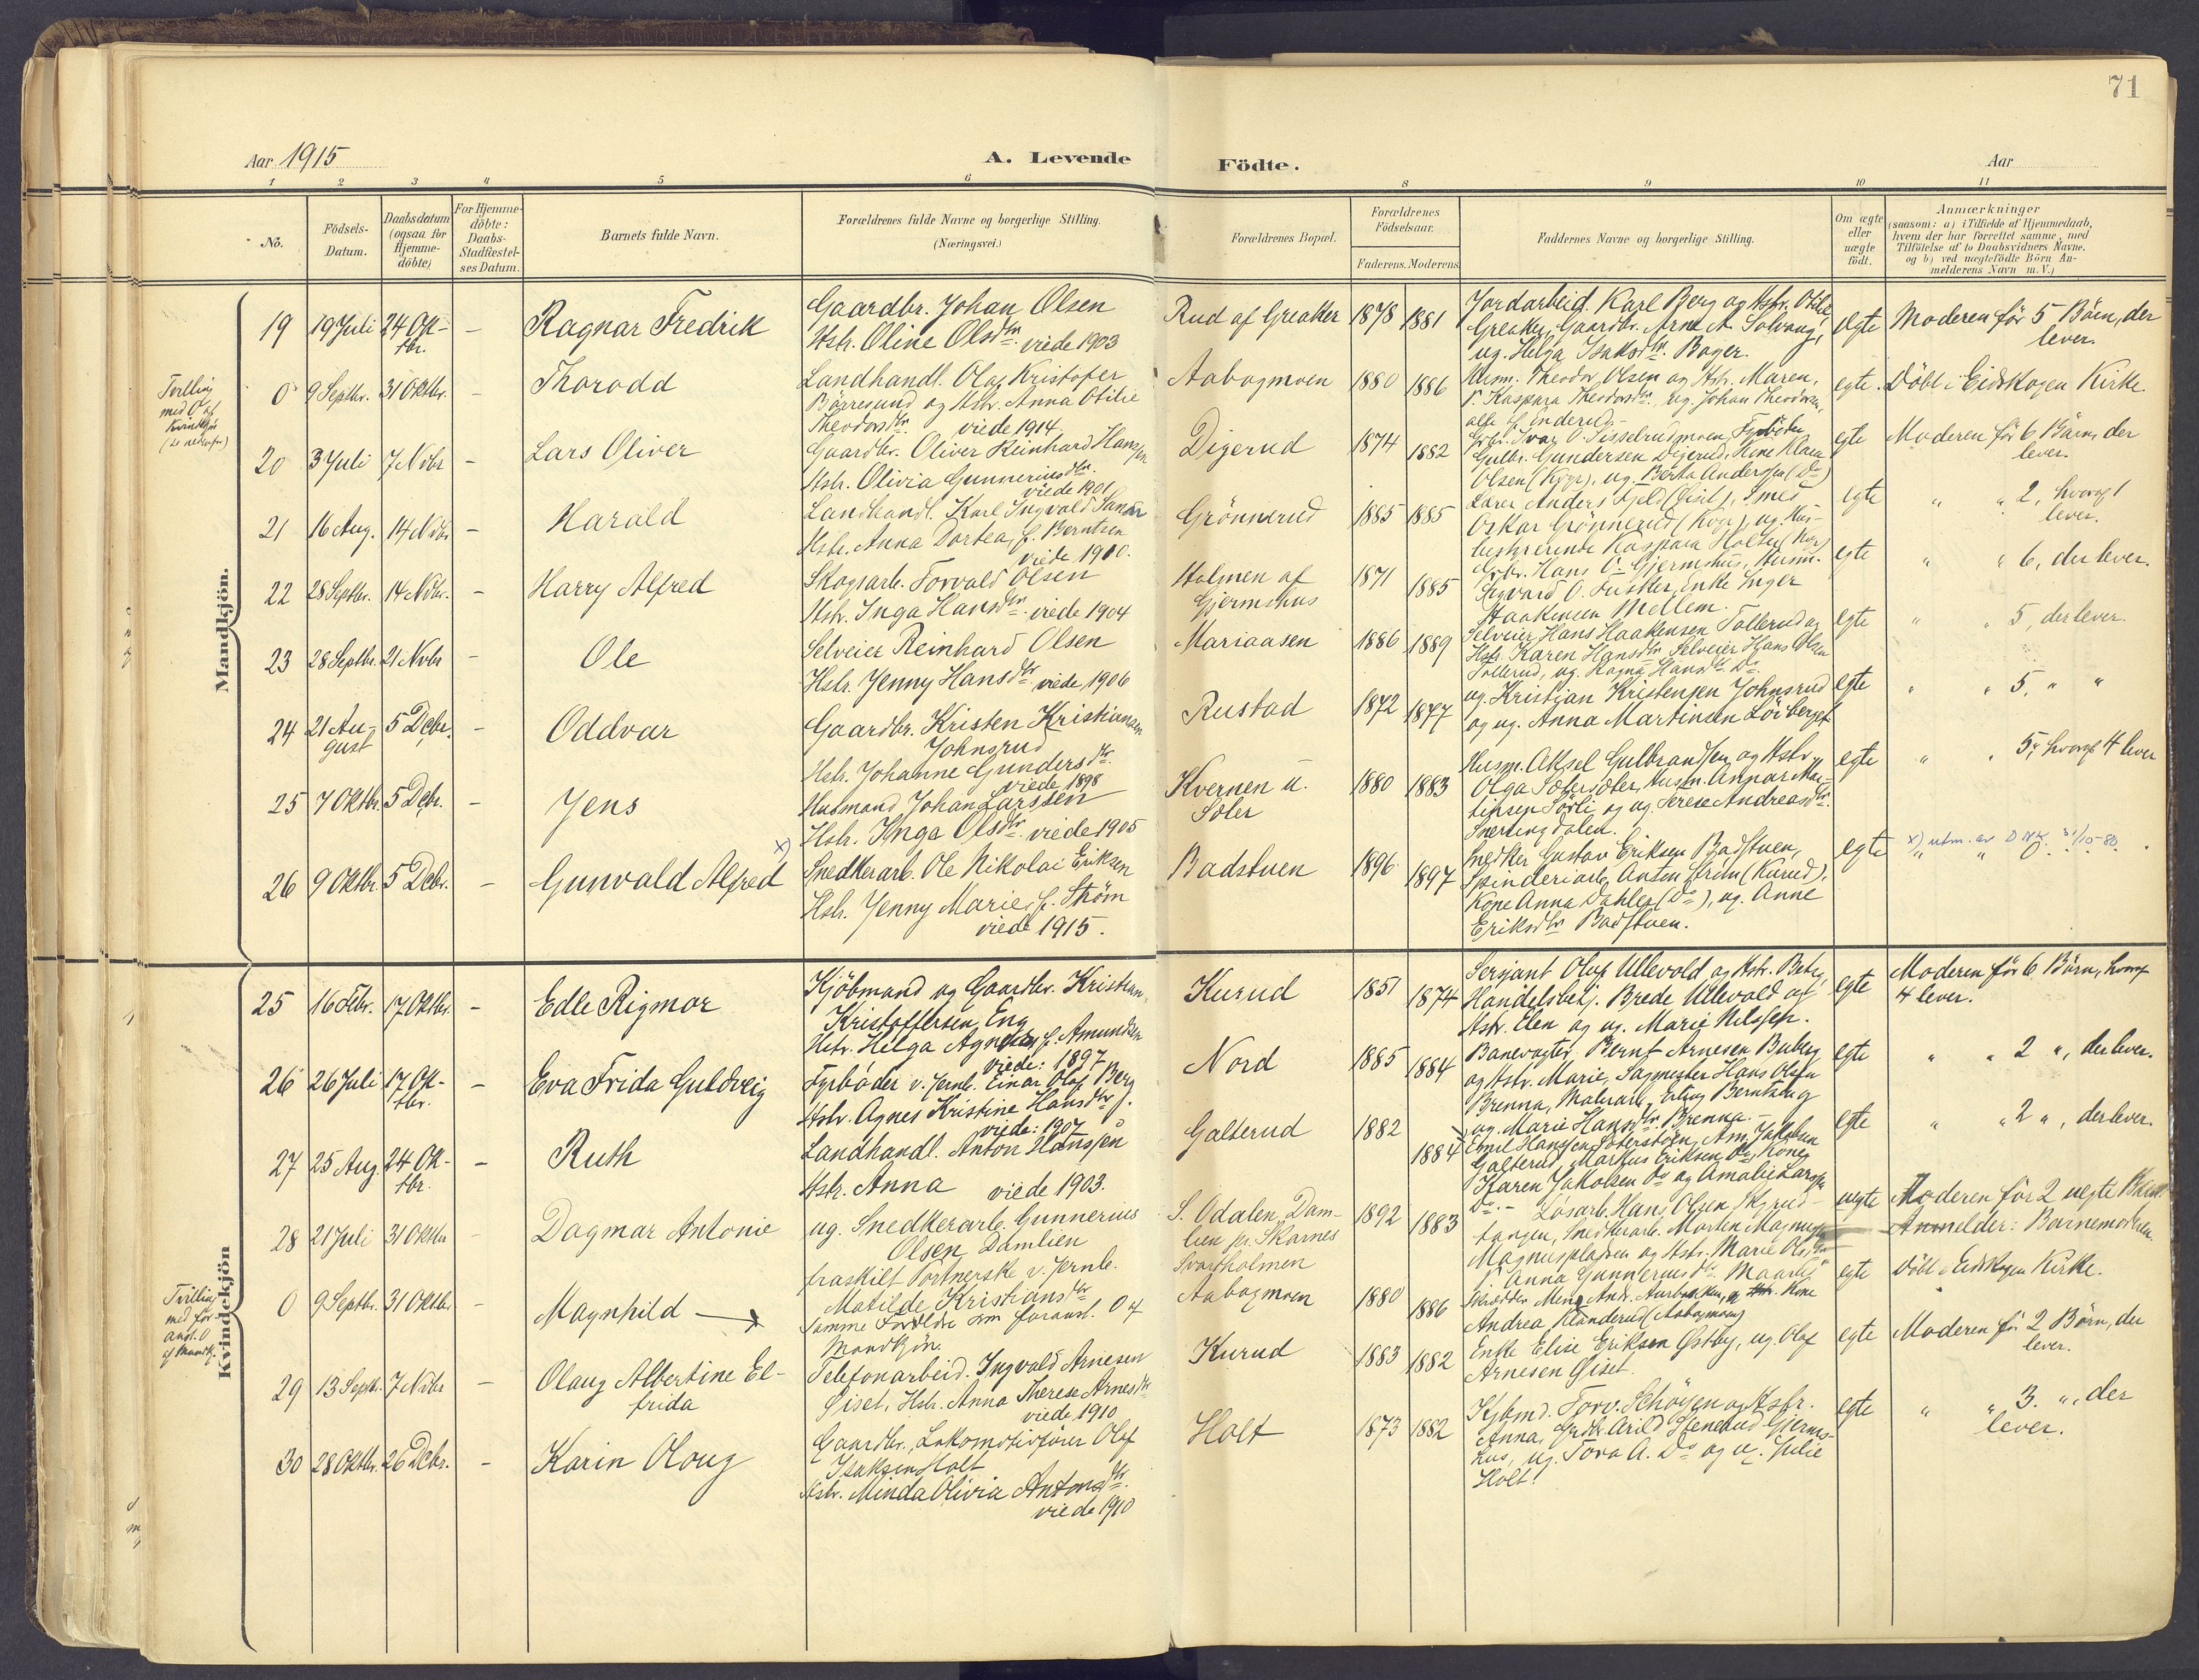 71
Aar 1915
A. Levende Födte.
Aar
1 2 3 4 5 6 8 9 10 11
No.
Födsels-Datum.
Daabsdatum (ogsaa for Hjemme-döbte)
For Hjemme-döbte: Daabs-Stadfæstel-ses Datum.
Barnets fulde Navn.
Forældrenes fulde Navne og borgerlige Stilling.
(Næringsvei.)
Forældrenes Bopæl.
Forældrenes Födselsaar.
Faderens. Moderens
Faddernes Navne og borgerlige Stilling.
Om ægte eller uægte födt.
Anmærkninger
(saasom: a) i Tilfælde af Hjemmedaab,
hvem der har forrettet samme, med
Tilföielse af to Daabsvidners Navne.
og b) ved uægtefödte Börn An-
melderens Navn m.V.)
Mandkjön.
19 19 Juli 24 Ok-tbr. - Ragnar Fredrik
Gaardbr. Johan Olsen
Hstr. Oline Olsdtr. viede 1903
Rud af Greaker 1878 1881
Jordarbeid. Karl Berg og Hstr. Otilie
Greaker, Gaardbr. Arne A. Solvang,
ug. Helga Isaksdtr. Bager.
egte
Moderen för 5 Börn, der
lever.
Tvilling
med 0 af
Kvindekjön
(se nedenfor)
0 9 Septbr. 31 Oktbr. - Thorodd
Landhandl. Olaf Kristofer
Böhresund og Hstr. Anna Otilie
Theodorsdtr. viede 1914.
Aabogmoen 1880 1886
Husm. Theodor Olsen og Hstr. Maren,
P. Kaspara Theodorsdtr., ug. Johan Theodorsen,
alle f. Enderud.
egte.
Döbt i Eidskogen Kirke.
20 3 Juli 7 Novbr - Lars Oliver
Gaardbr. Oliver Reinhard Hanssen
Hstr. Olivia Gunneriusdtr.
viede 1901
Digerud 1874 1882
Grbr. Ivar O. Sisselrudmoen, Fyrböder
Gulbr. Gundersen Digerud, Kone Klara
Olsen (Kogr), ug. Berta Andersen (Do)
egte
Moderen för 6 Börn, der
lever.
21 16 Aug. 14 Novbr - Harald
Landhandl. Karl Ingvald Sander
Hstr. Anna Dortea, f. Berntsen
viede 1910.
Grönnerud 1885 1885
Lærer Anders Fjeld (Gisel), Smed
Oskar Grönnerud (Kogr), ug. Hus-
bestyrerinde Kaspara Holsen (Kogr)
egte
" " 2, hvoraf 1
lever.
22 28 Septbr. 14 Novbr. - Harry Alfred
Skogsarb. Torvald Olsen
Hstr. Inga Hansdtr. viede 1904
Holmen af
Gjermshus
1871 1885
Grbr. Hans O. Gjermshus, Husm.
Sigvard O. Fusker, Enke Inger
Haakensen Mellem.
egte
" " 6, der lever.
23 28 Septbr. 21 Novbr - Ole
Selveier Reinhard Olsen
Hstr. Jenny Hansdtr. viede 1906
Mariaasen 1886 1889
Selveier Hans Haakensen Tollerud og
Hstr. Karen Hansdtr. Selveier Hans Olsen
Tollerud, ug. Ragna Hansdtr Do
egte
" " 5, der lever.
24 21 Au-gust 5 Decbr. - Oddvar
Gaardbr. Kristen Kristiansen
Johnsrud
Hstr. Johanne Gundersdtr.
viede 1898
Rustad 1872 1877
ug. Kristian Kristensen Johnsrud
og ug. Anna Martinsen Löiberget
egte
" " 5, " "
25 7 Oktbr. 5 Decbr. - Jens
Husmand Johan Larssen
Hstr. Inga Olsdtr. viede 1905
Kvernen u.
Sæter
1880 1883
Husm. Aksel Gulbrandsen og Hstr
Olga Sætersæter, Husm. Annar Mar-
tinsen Sörli og ug. Serese Andreasdtr.
Snertingdalen.
egte
" " 5, hvoraf 4 lever
26 9 Oktbr. 5 Decbr. - Gunvald Alfred x)
Snedkerarb. Ole Nikolai Eriksen
Hstr. Jenny Marie, f. Ström
viede 1915.
Badstuen 1896 1897
Snedker Gustav Eriksen Badstuen,
Spinderiarb. Anton Ström (Kurud),
Kone Anna Dahler (Do), ug. Anne
Eriksdtr Badstuen.
egte
x) utm. av DNK. 31/10-80.
" " 0. "
Kvindekjön
25 16 Febr. 17 Oktbr. - Edle Rigmor
Kjöbmand og Gaardbr. Kristian
Kristoffersen Eng
Hstr. Helga Agnete, f. Amundsen
viede: 1897
Kurud 1851 1874
Sersjant Oluf Ullevold og Hstr. Betzy,
Handelsbetj. Brede Ullevold og
Hstr. Elen og ug. Marie Nilssen.
egte
Moderen för 6 Börn, hvoraf
4 lever.
26 26 Juli 17 Ok-tbr. - Eva Frida Guldveig
Fyrböder v. Jernb. Einar Olaf Berg
Hstr. Agnes Kristine Hansdtr.
viede: 1907
Nord 1885 1884
Banevogter Bernt Arnesen Buberg
og Hstr. Marie, Sagmester Hans Olsen
Brenna, Malerarb. Erling Berntsen og
ug. Marie Hansdtr. Brenna.
egte
" " 2 ", der lever.
27 25 Aug. 24 Ok-tbr. - Ruth
Landhandl. Anton Hanssen
Hstr. Anna viede 1903.
Galterud 1882 1884
Emil Hanssen Sæterstöen, Am. Jakobsen
Galterud, Markus Eriksen Do, Kone
Karen Jakobsen Do og Amalie Larssen
Do.
egte
" " 2 ", der lever.
28 21 Juli 31 Oktbr - Dagmar Antonie
ug. Snedkerarb. Gunnerius
Olsen Damlien
fraskilt Portnerske v. Jernb.
Matilde Kristiansdtr
S. Odalen Dam-
lien pr. Skarnes
Svartholmen
1892 1883
Lösarb. Hans Olsen Skjrud-
tangen, Snedkerarb. Morten Magnussen
Magnusplassen og Hstr. Marie Olsdtr
P. Anna Gunneriusdtr. Maarli
uegte
Moderen för 2 uegte Börn.
Anmelder: Barnemoderen.
Tvilling
med for-
anst. 0
af Mandkj.
0 9 Septbr. 31 Oktbr. - Magnhild →
Samme Forældre som foranst. 0 af
Mandkjön.
Aabogmoen 1880 1886
Skrædder Andr. Aurbakken, og Kone
Andrea Klanderud (Aabogmoen)
egte
Döbt i Eidskogen Kirke.
29 13 Septbr. 7 Novbr - Olaug Albertine El-
frida
Telefonarbeid. Ingvald Arnesen
Gisel, Hstr. Anna Therese Arnesdtr.
viede 1910
Kurud 1883 1882
Enke Elise Eriksen Östby, ug. Olaf
Arnesen Gisel.
egte
Moderen för 2 Börn, der
lever.
30 28 Oktbr. 26 Decbr. - Karin Oloug
Gaardbr., Lokomotivförer Olaf
Isaksen Holt
Hstr. Minda Olivia Antonsdtr.
viede 1910
Holt 1873 1882
Kjbmd. Torv. Schöyen og Hstr.
Anna, Grdbr. Arild Stenerud Gjerms-
hus, ug. Tora A. Do og ug. Julie
Holt.
egte
" " 3. ", der
lever.